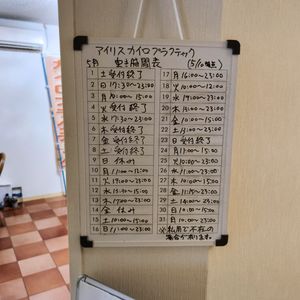 アイリスカイロプラクティック
5月 空き時間表 (5/10時点)
1 土 受付終了
2 日 17:30~23:00
3 月 10:00~15:00
4 火 受付終了
5 水 17:30~23:00
6 木 受付終了
7 金 受付終了
8 土 受付終了
9 日 休み
10 月 11:00~12:00
11 火 19:00~23:00
12 水
13 木 17:00~23:00
14 金 休み
15 土 10:00~15:00
16 日 11:00~23:00
17 月 16:00~23:00
18 火 10:00~12:00
19 水 19:00~23:00
20 木 15:00~23:00
21 金 10:00~15:00
22 土 13:00~23:00
23 日 受付終了
24 月 11:00~15:00
25 火 10:00~23:00
26 水 11:00~23:00
27 木 10:00~15:00
28 金
29 土 14:00~23:00
30 日 10:00~15:00
31 月 10:00~15:00
※私用で不在の
場合が有ります。